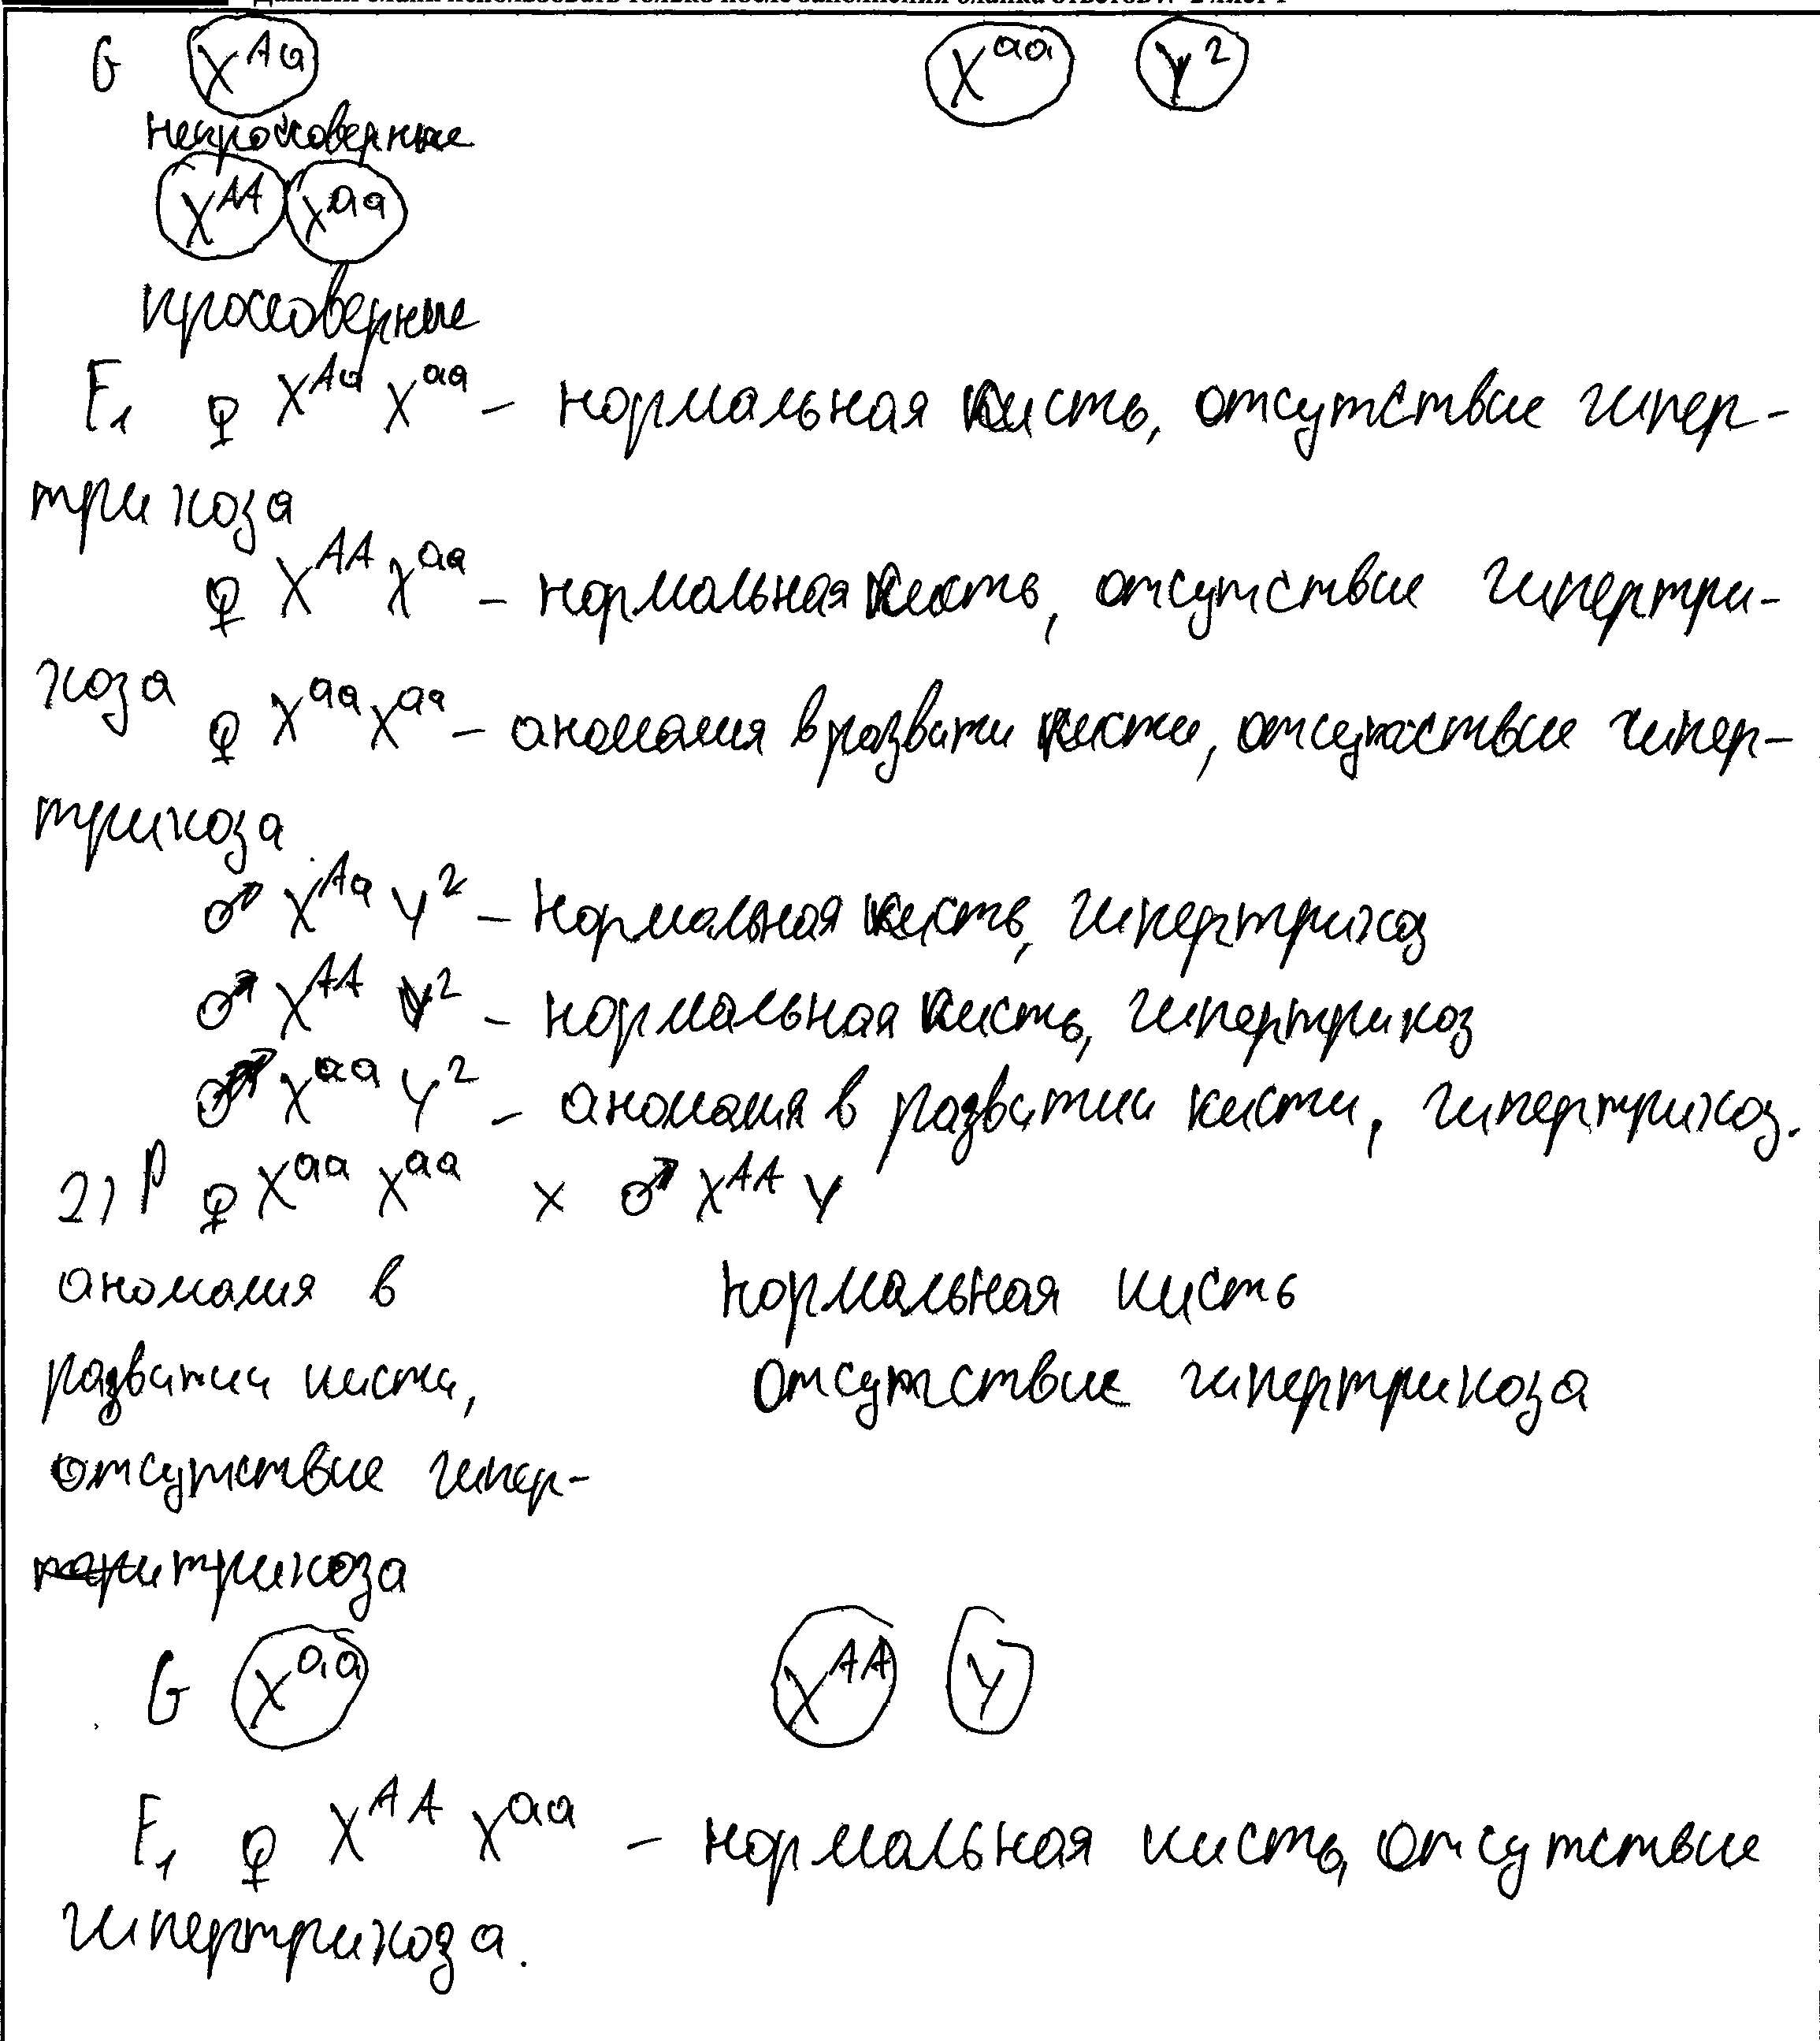 G X^Aa X^aa Y^2
некроссоверные
X^AA X^aa
кроссоверные
F1 ♀ X^Aa X^aa – нормальная кисть, отсутствие гипер-
трихоза
♀ X^AA X^aa – нормальная кисть, отсутствие гипертри-
хоза
♀ X^aa X^aa – аномалия в развити кисти, отсутствие гипер-
трихоза
♂ X^Aa Y^2 – нормальная кисть, гипертрихоз
♂ X^AA Y^2 – нормальная кисть, гипертрихоз
♂ X^aa Y^2 – аномалия в развитии кисти, гипертрихоз.
2) P ♀ X^aa X^aa × ♂ X^AA Y
аномалия в нормальная кисть
развитии кисти, отсутствие гипертрихоза
отсутствие гипер-
трихоза
G X^aa X^AA Y
F1 ♀ X^AA X^aa – нормальная кисть, отсутствие
гипертрихоза.